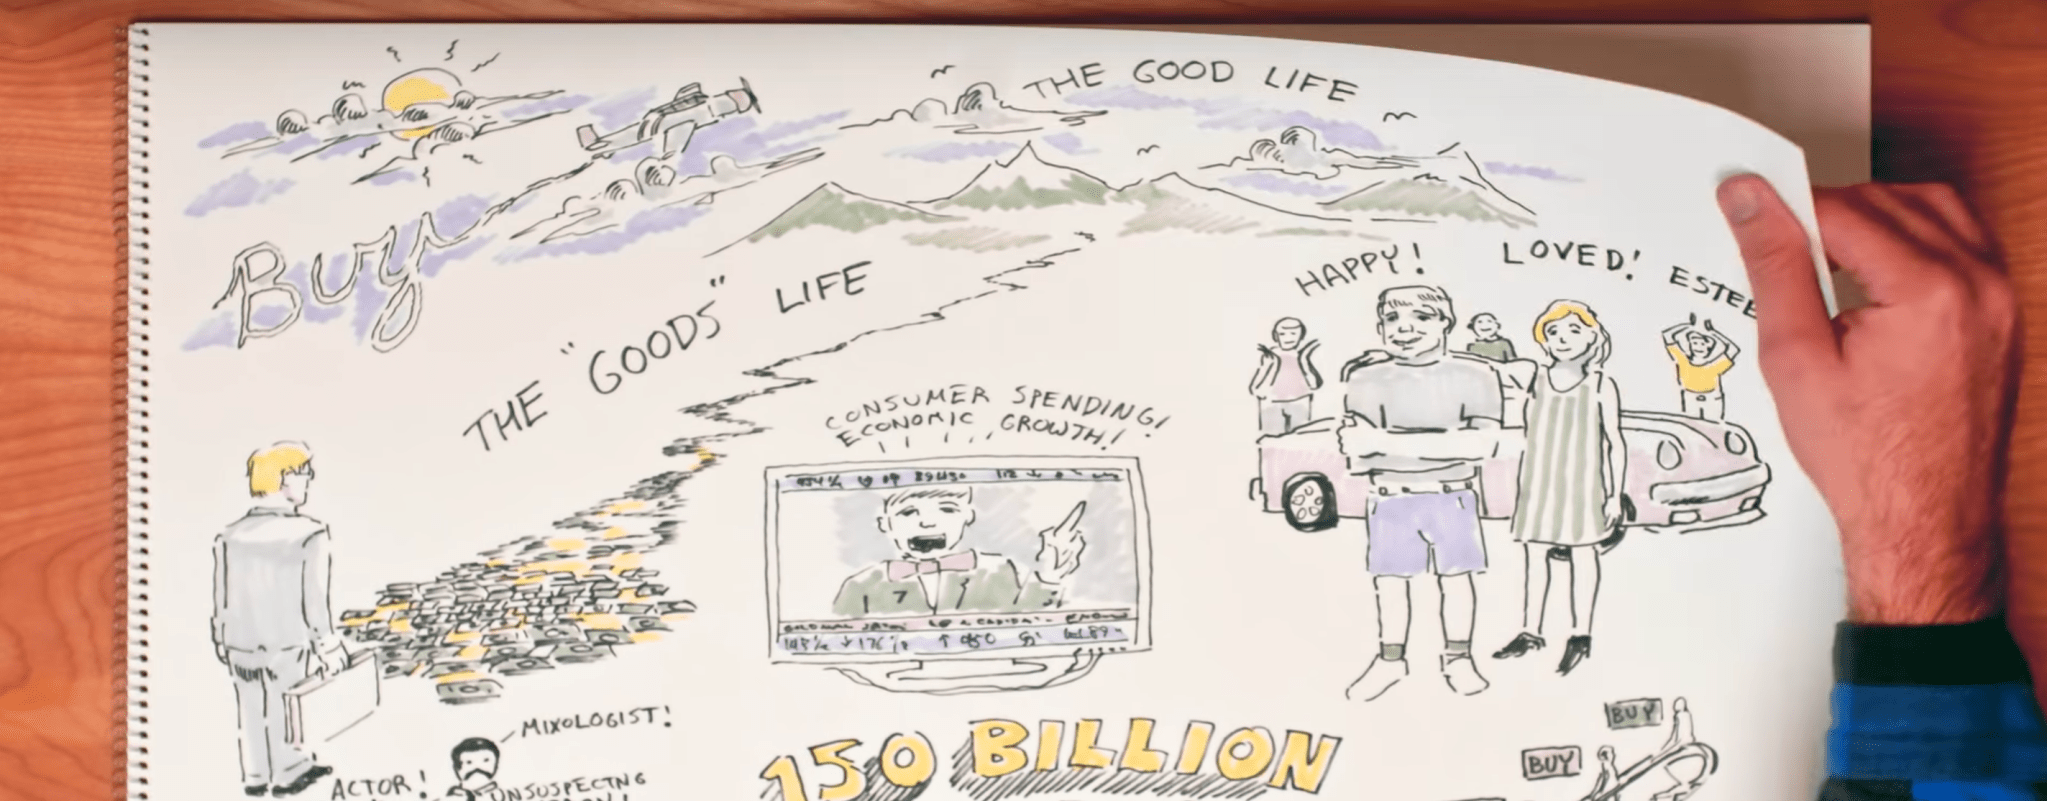 THE GOOD LIFE
Buy
THE "GOODS" LIFE
HAPPY! LOVED! ESTEE
CONSUMER SPENDING!
ECONOMIC GROWTH!
MIXOLOGIST!
ACTOR!
UNSUSPECTNG
150 BILLION
BUY
BUY